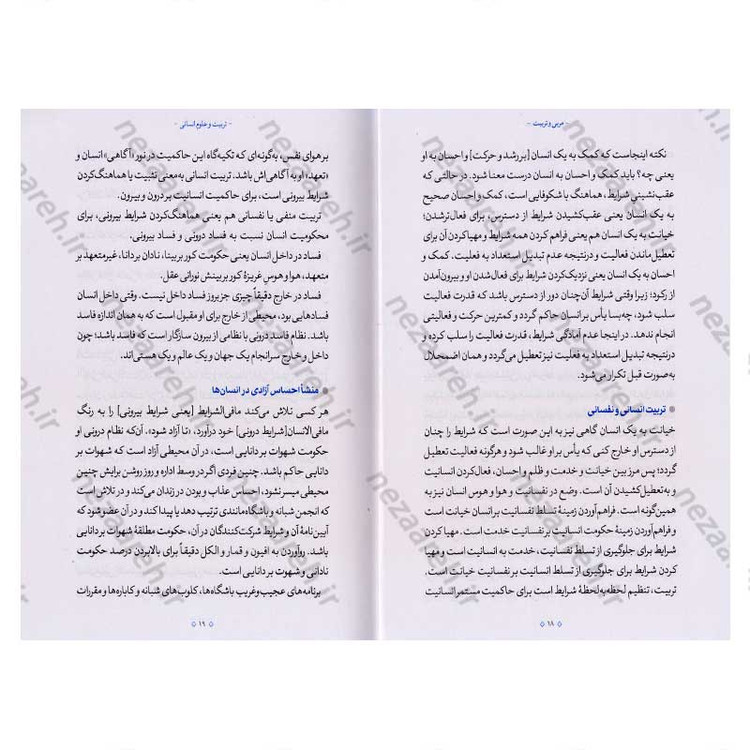 - مربی و تربیت -
نکته اینجاست که کمک به یک انسان [بر رشد و حرکت] و احسان به او
یعنی چه؟ باید کمک و احسان به انسان درست معنا شود. در حالتی که
عقب‌نشینیِ شرایط، هماهنگ با شکوفایی است، کمک و احسان صحیح
به یک انسان یعنی عقب‌کشیدن شرایط از دسترس، برای فعال‌ترشدن؛
خیانت به یک انسان هم یعنی فراهم کردن همه شرایط و مهیا کردن آن برای
تعطیل‌ماندن فعالیت و درنتیجه عدم تبدیل استعداد به فعلیت. کمک و
احسان به یک انسان یعنی نزدیک‌کردن شرایط برای فعال‌شدن او و بیرون‌آمدن
از رکود؛ زیرا وقتی شرایط آن‌چنان دور از دسترس باشد که قدرت فعالیت
سلب شود، چه‌بسا یأس بر انسان حاکم گردد و کمترین حرکت و فعالیتی
انجام ندهد. در اینجا عدم آمادگی شرایط، قدرت فعالیت را سلب کرده و
درنتیجه تبدیل استعداد به فعلیت نیز تعطیل می‌گردد و همان اضمحلال
به‌صورت قبل تکرار می‌شود.
تربیت انسانی و نفسانی
خیانت به یک انسان گاهی نیز به این صورت است که شرایط را چنان
از دسترس او خارج کنی که یأس بر او غالب شود و هرگونه فعالیت تعطیل
گردد؛ پس مرز بین خیانت و خدمت و ظلم و احسان، فعال‌کردن انسانیت
و به‌تعطیل‌کشیدن آن است. وضع در نفسانیت و هوا و هوس انسان نیز به
همین‌گونه است. فراهم‌آوردن زمینهٔ تسلط نفسانیت بر انسان خیانت است
و فراهم‌آوردن زمینهٔ حکومت انسانیت بر نفسانیت خدمت است. مهیا کردن
شرایط برای جلوگیری از تسلط نفسانیت، خدمت به انسانیت است و مهیا
کردن شرایط برای جلوگیری از تسلط انسانیت بر نفسانیت خیانت است.
تربیت، تنظیم لحظه‌به‌لحظهٔ شرایط است برای حاکمیت مستمر انسانیت
۱۸
- تربیت و علوم انسانی -
بر هوای نفس، به‌گونه‌ای که تکیه‌گاه این حاکمیت در نور «آگاهی» انسان و
«تعهد» او به آگاهی‌اش باشد. تربیت انسانی به‌معنی تثبیت یا هماهنگ‌کردن
شرایط بیرونی است، برای حاکمیت انسانیت بر درون و بیرون.
تربیت منفی یا نفسانی هم یعنی هماهنگ‌کردن شرایط بیرونی، برای
محکومیت انسان نسبت به فساد درونی و فساد بیرونی.
فساد در داخل انسان یعنی حکومت کور بر بینا، نادان بر دانا، غیرمتعهد بر
متعهد، هوا و هوسِ غریزهٔ کور بر بینش نورانی عقل.
فساد در خارج دقیقاً چیزی جز بروز فساد داخل نیست. وقتی داخل انسان
فسادهایی بود، محیطی از خارج برای او مقبول است که به همان اندازه فاسد
باشد. نظام فاسد درونی با نظامی از بیرون سازگار است که فاسد باشد؛ چون
داخل و خارج سرانجام یک جهان و یک عالم و یک هستی‌اند.
منشأ احساس آزادی در انسان‌ها
هر کسی تلاش می‌کند مافی‌الشرایط [یعنی شرایط بیرونی] را به رنگ
مافی‌الانسان [شرایط درونی] خود درآورد، «تا آزاد شود». آن‌که نظام درونی او
حکومت شهوات بر دانایی است، در آن محیطی آزاد است که شهوات بر
دانایی حاکم باشد. چنین فردی اگر در وسط اداره و روز روشن برایش چنین
محیطی میسر نشود، احساس عذاب و بودن در زندان می‌کند و در تلاش است
که انجمن شبانه و باشگاه‌مانندی ترتیب دهد یا پیدا کند و در آن عضو شود که
آیین‌نامهٔ آن و شرایط شرکت‌کنندگان در آن، حکومت مطلقهٔ شهوات بر دانایی
باشد. روآوردن به افیون و قمار و الکل دقیقاً برای بالابردن درصد حکومت
نادانی و شهوت بر دانایی است.
برنامه‌های عجیب‌وغریب باشگاه‌ها، کلوب‌های شبانه و کاباره‌ها و مقررات
۱۹
nezaareh.ir